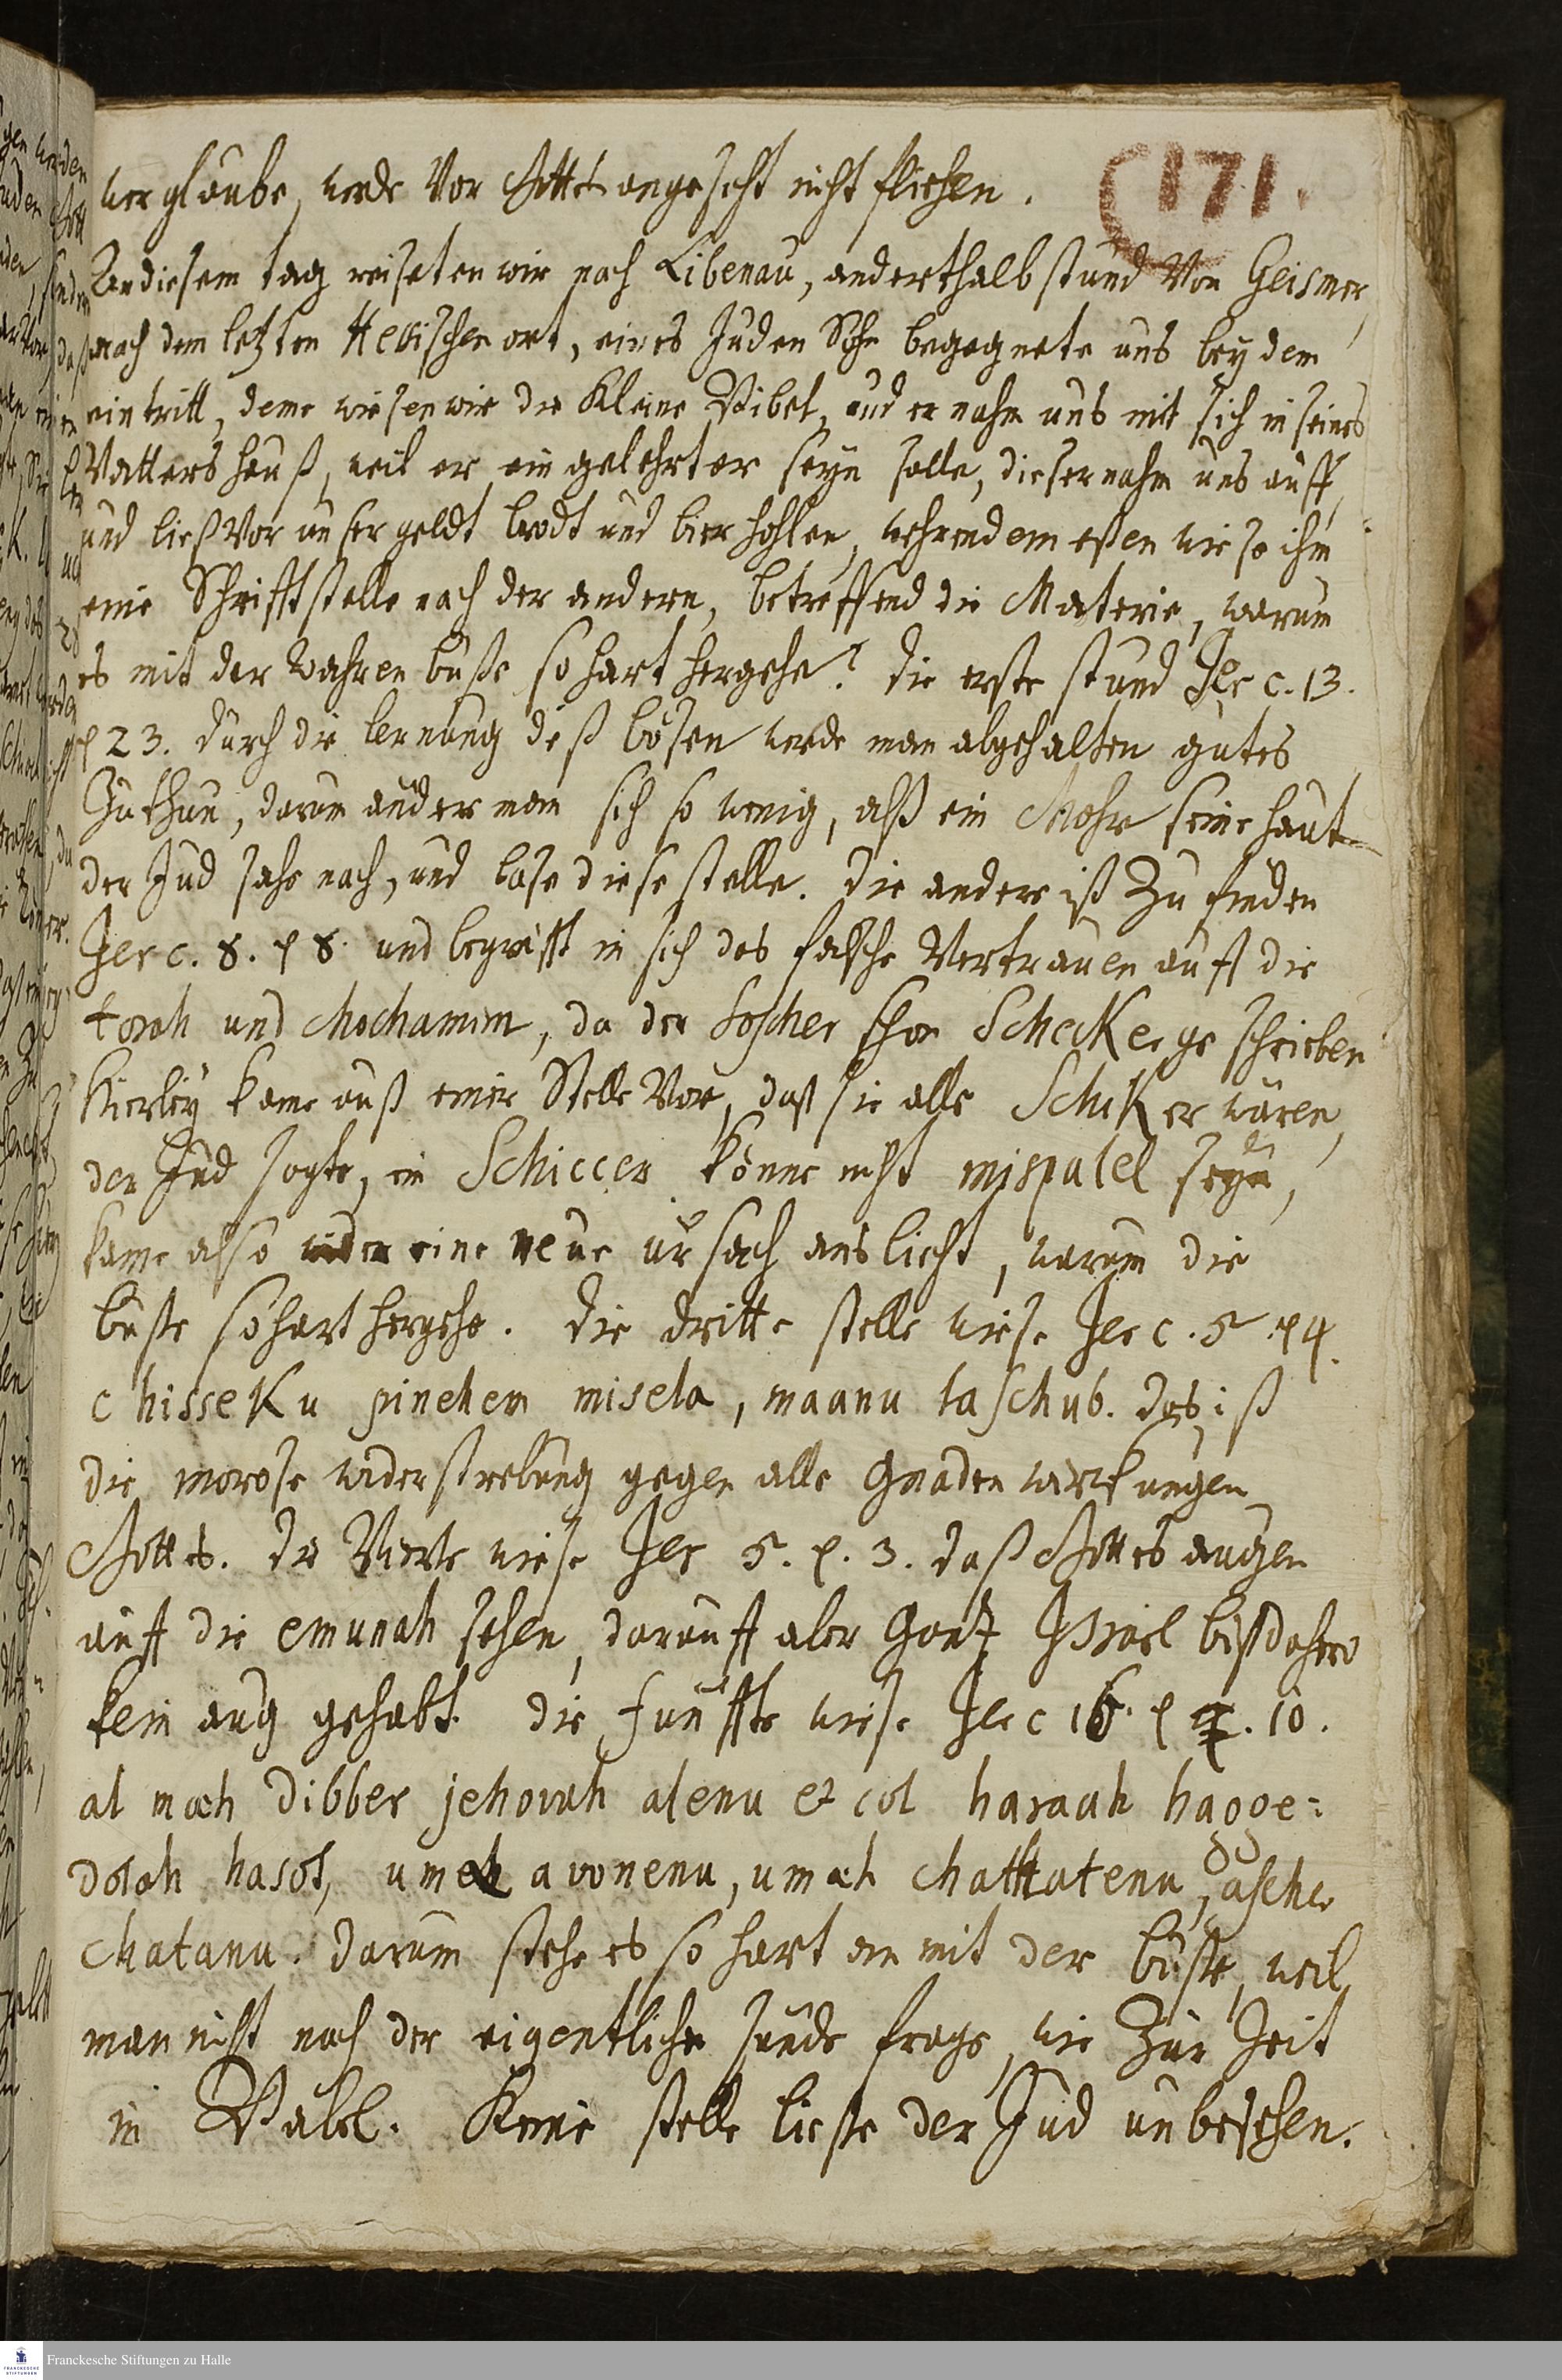 171.
wer glaube, werde Vor Gottes angesicht nicht fliehen.
An diesem tag reiseten wir nach Libenau, anderthalb stund Von Geismer,
nach dem letzten Hessischen ort, eines Juden Sohn begegnete uns bey dem
eintritt, deme wiesen wir die Kleine Bibel, und er nahm uns mit sich in seines
Vatters hauß, weil er ein gelehrter seyn solle, dieser nahm uns auff,
und ließ Vor unser geldt brodt und bier hohlen, wehrendem eßen wiese ihm
eine Schrifftstelle nach der andern, betreffend die Materie, warum
es mit der wahren buße so hart hergehe? die erste stund Jer c. 13.
℣ 23. durch die lernung deß bösen werde man abgehalten gutes
zuthun, darum änder man sich so wenig, alß ein Mohr seine haut
der Jud sahe nach, und lase diese stelle. die andere ist zu finden
Jer c. 8. ℣ 8. und begreifft in sich das falsche Vertrauen auff die
torah und chochamim, da der Sopher schon Schecker geschrieben
Hierbey kame auß einer Stelle Vor, daß sie alle SchiKer wären,
der Jud sagte, ein Schiccer könne nicht mispalel seyn,
kame also wider eine neue ursach ans licht, warum die
buße so hart hergehe. die dritte stelle wiese Jer c. 5 ℣ 4.
chisseKu pinehem misela, maanu laschub. das iß
die morose widerstrebung gegen alle Gnaden wirkungen
Gottes. die Vierte wiese Jer 5. ℣. 3. daß Gottes augen
auff die emunah sehen, darauff aber Gantz Israel biß dahero
kein aug gehabt. die funffte wiese Jer c 16. ℣ 10.
al mah dibber jehovah alenu et col haraah hagge=
dolah hasot, umeh avonenu, umah chattatenu, ascher
chatanu. darum stehe es so hart an mit der buße, weil
man nicht nach der eigentlichen sünde frage, wie zur Zeit
in Babel. Keine stelle ließe der Jud unbesehen.
Franckesche Stiftungen zu Halle